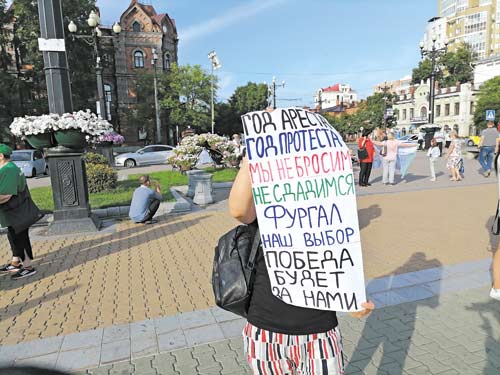 ГОД АРЕСТА
ГОД ПРОТЕСТА
МЫ НЕ БРОСИМ
НЕ СДАДИМСЯ
ФУРГАЛ
НАШ ВЫБОР
ПОБЕДА
БУДЕТ
ЗА НАМИ